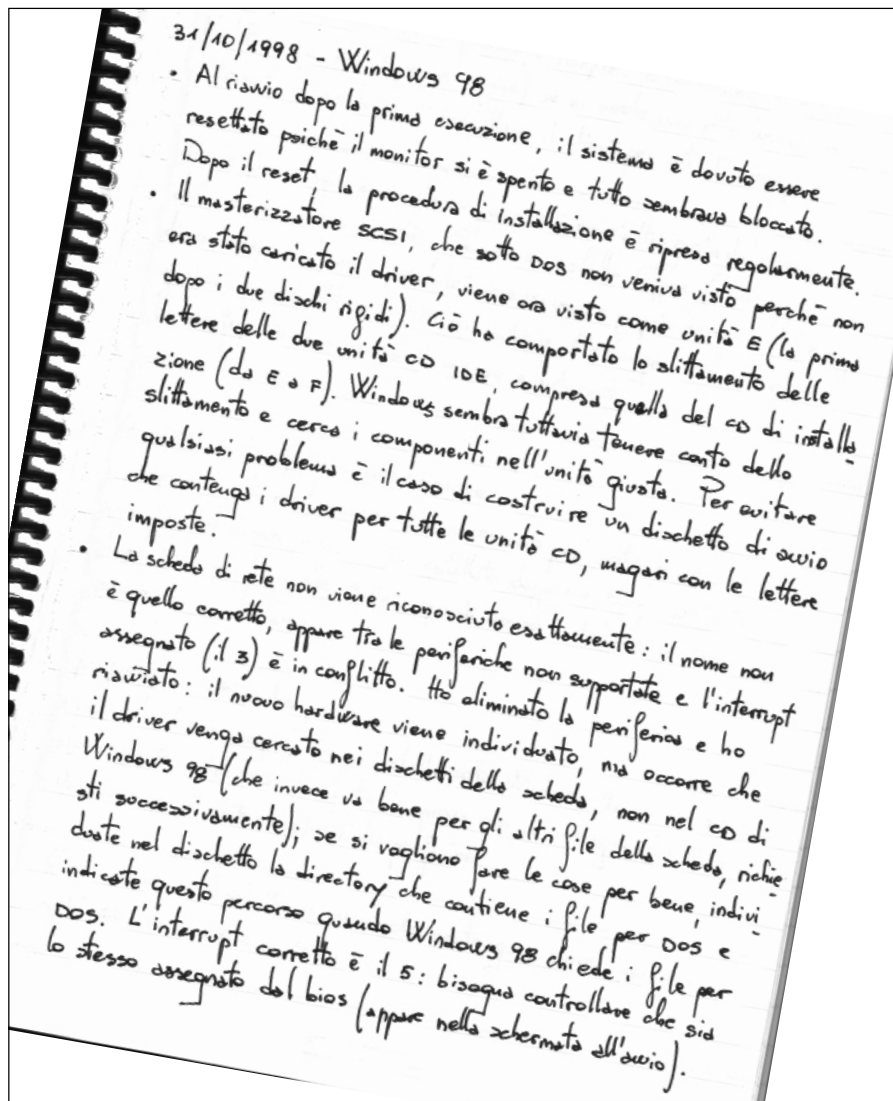 31/10/1998 - Windows 98
• Al riavvio dopo la prima esecuzione, il sistema è dovuto essere
resettato poiché il monitor si è spento e tutto sembrava bloccato.
Dopo il reset, la procedura di installazione è ripresa regolarmente.
• Il masterizzatore SCSI, che sotto DOS non veniva visto perché non
era stato caricato il driver, viene ora visto come unità E (la prima
dopo i due dischi rigidi). Ciò ha comportato lo slittamento delle
lettere delle due unità CD IDE, compresa quella del CD di installa-
zione (da E a F). Windows sembra tuttavia tenere conto dello
slittamento e cerca i componenti nell'unità giusta. Per evitare
qualsiasi problema è il caso di costruire un dischetto di avvio
che contenga i driver per tutte le unità CD, magari con le lettere
imposte.
• La scheda di rete non viene riconosciuta esattamente: il nome non
è quello corretto, appare tra le periferiche non supportate e l'interrupt
assegnato (il 3) è in conflitto. Ho eliminato la periferica e ho
riavviato: il nuovo hardware viene individuato, ma occorre che
il driver venga cercato nei dischetti della scheda, non nel CD di
Windows 98 (che invece va bene per gli altri file della scheda, richie-
sti successivamente); se si vogliono fare le cose per bene, indivi-
duate nel dischetto la directory che contiene i file per DOS e
indicate questo percorso quando Windows 98 chiede i file per
DOS. L'interrupt corretto è il 5: bisogna controllare che sia
lo stesso assegnato dal bios (appare nella schermata all'avvio).